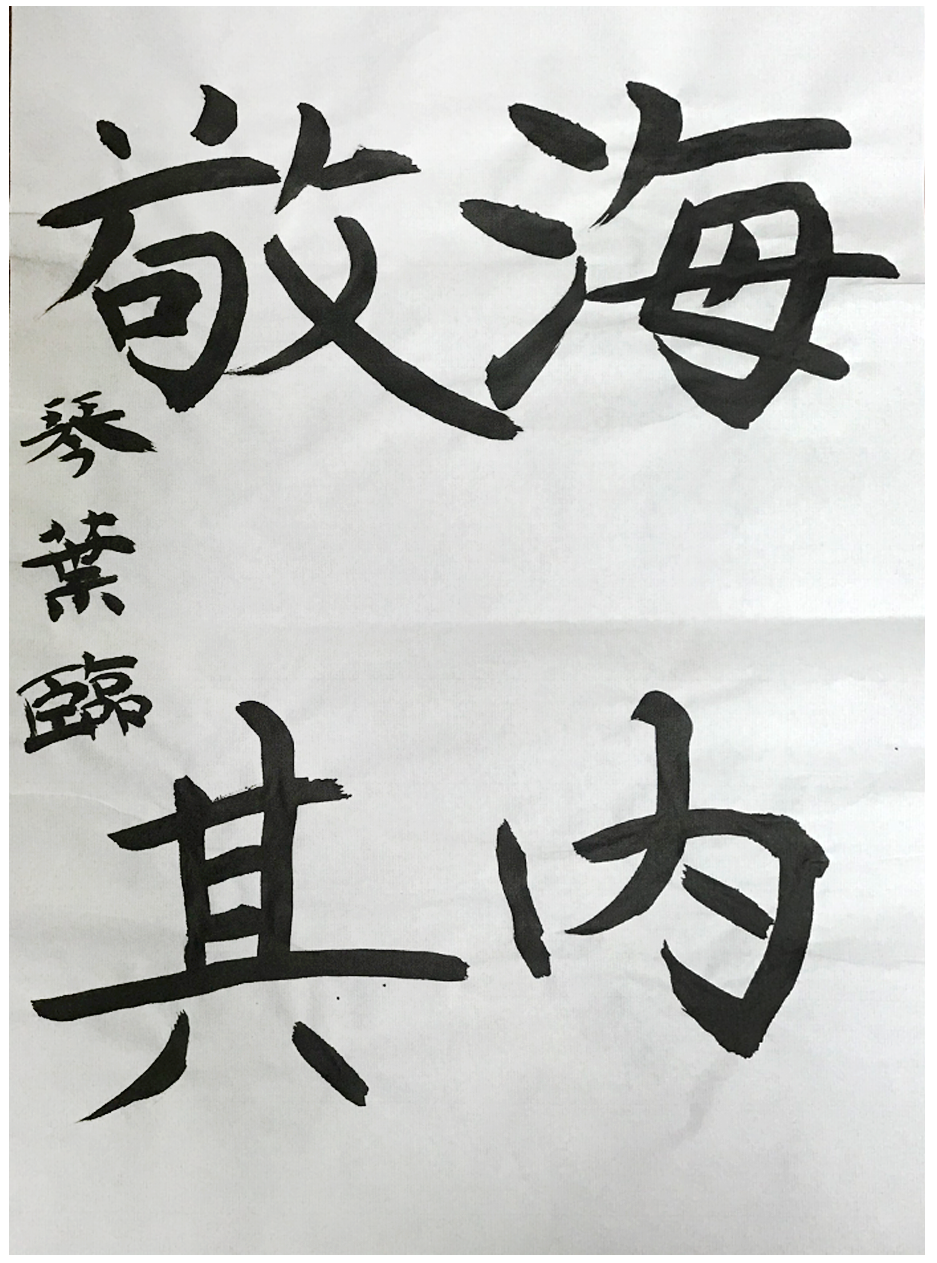 海内
敬其
琴葉臨